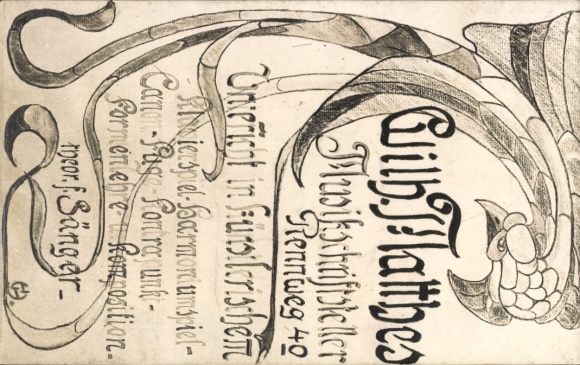 Wilh. Matthes
Musikschriftsteller
Rennweg 40
Unterricht in künstlerischem
Klavierspiel-Harmoniumspiel-
Canon-Fuge-
Formenlehre-Komposition.
theor. f. Sänger-